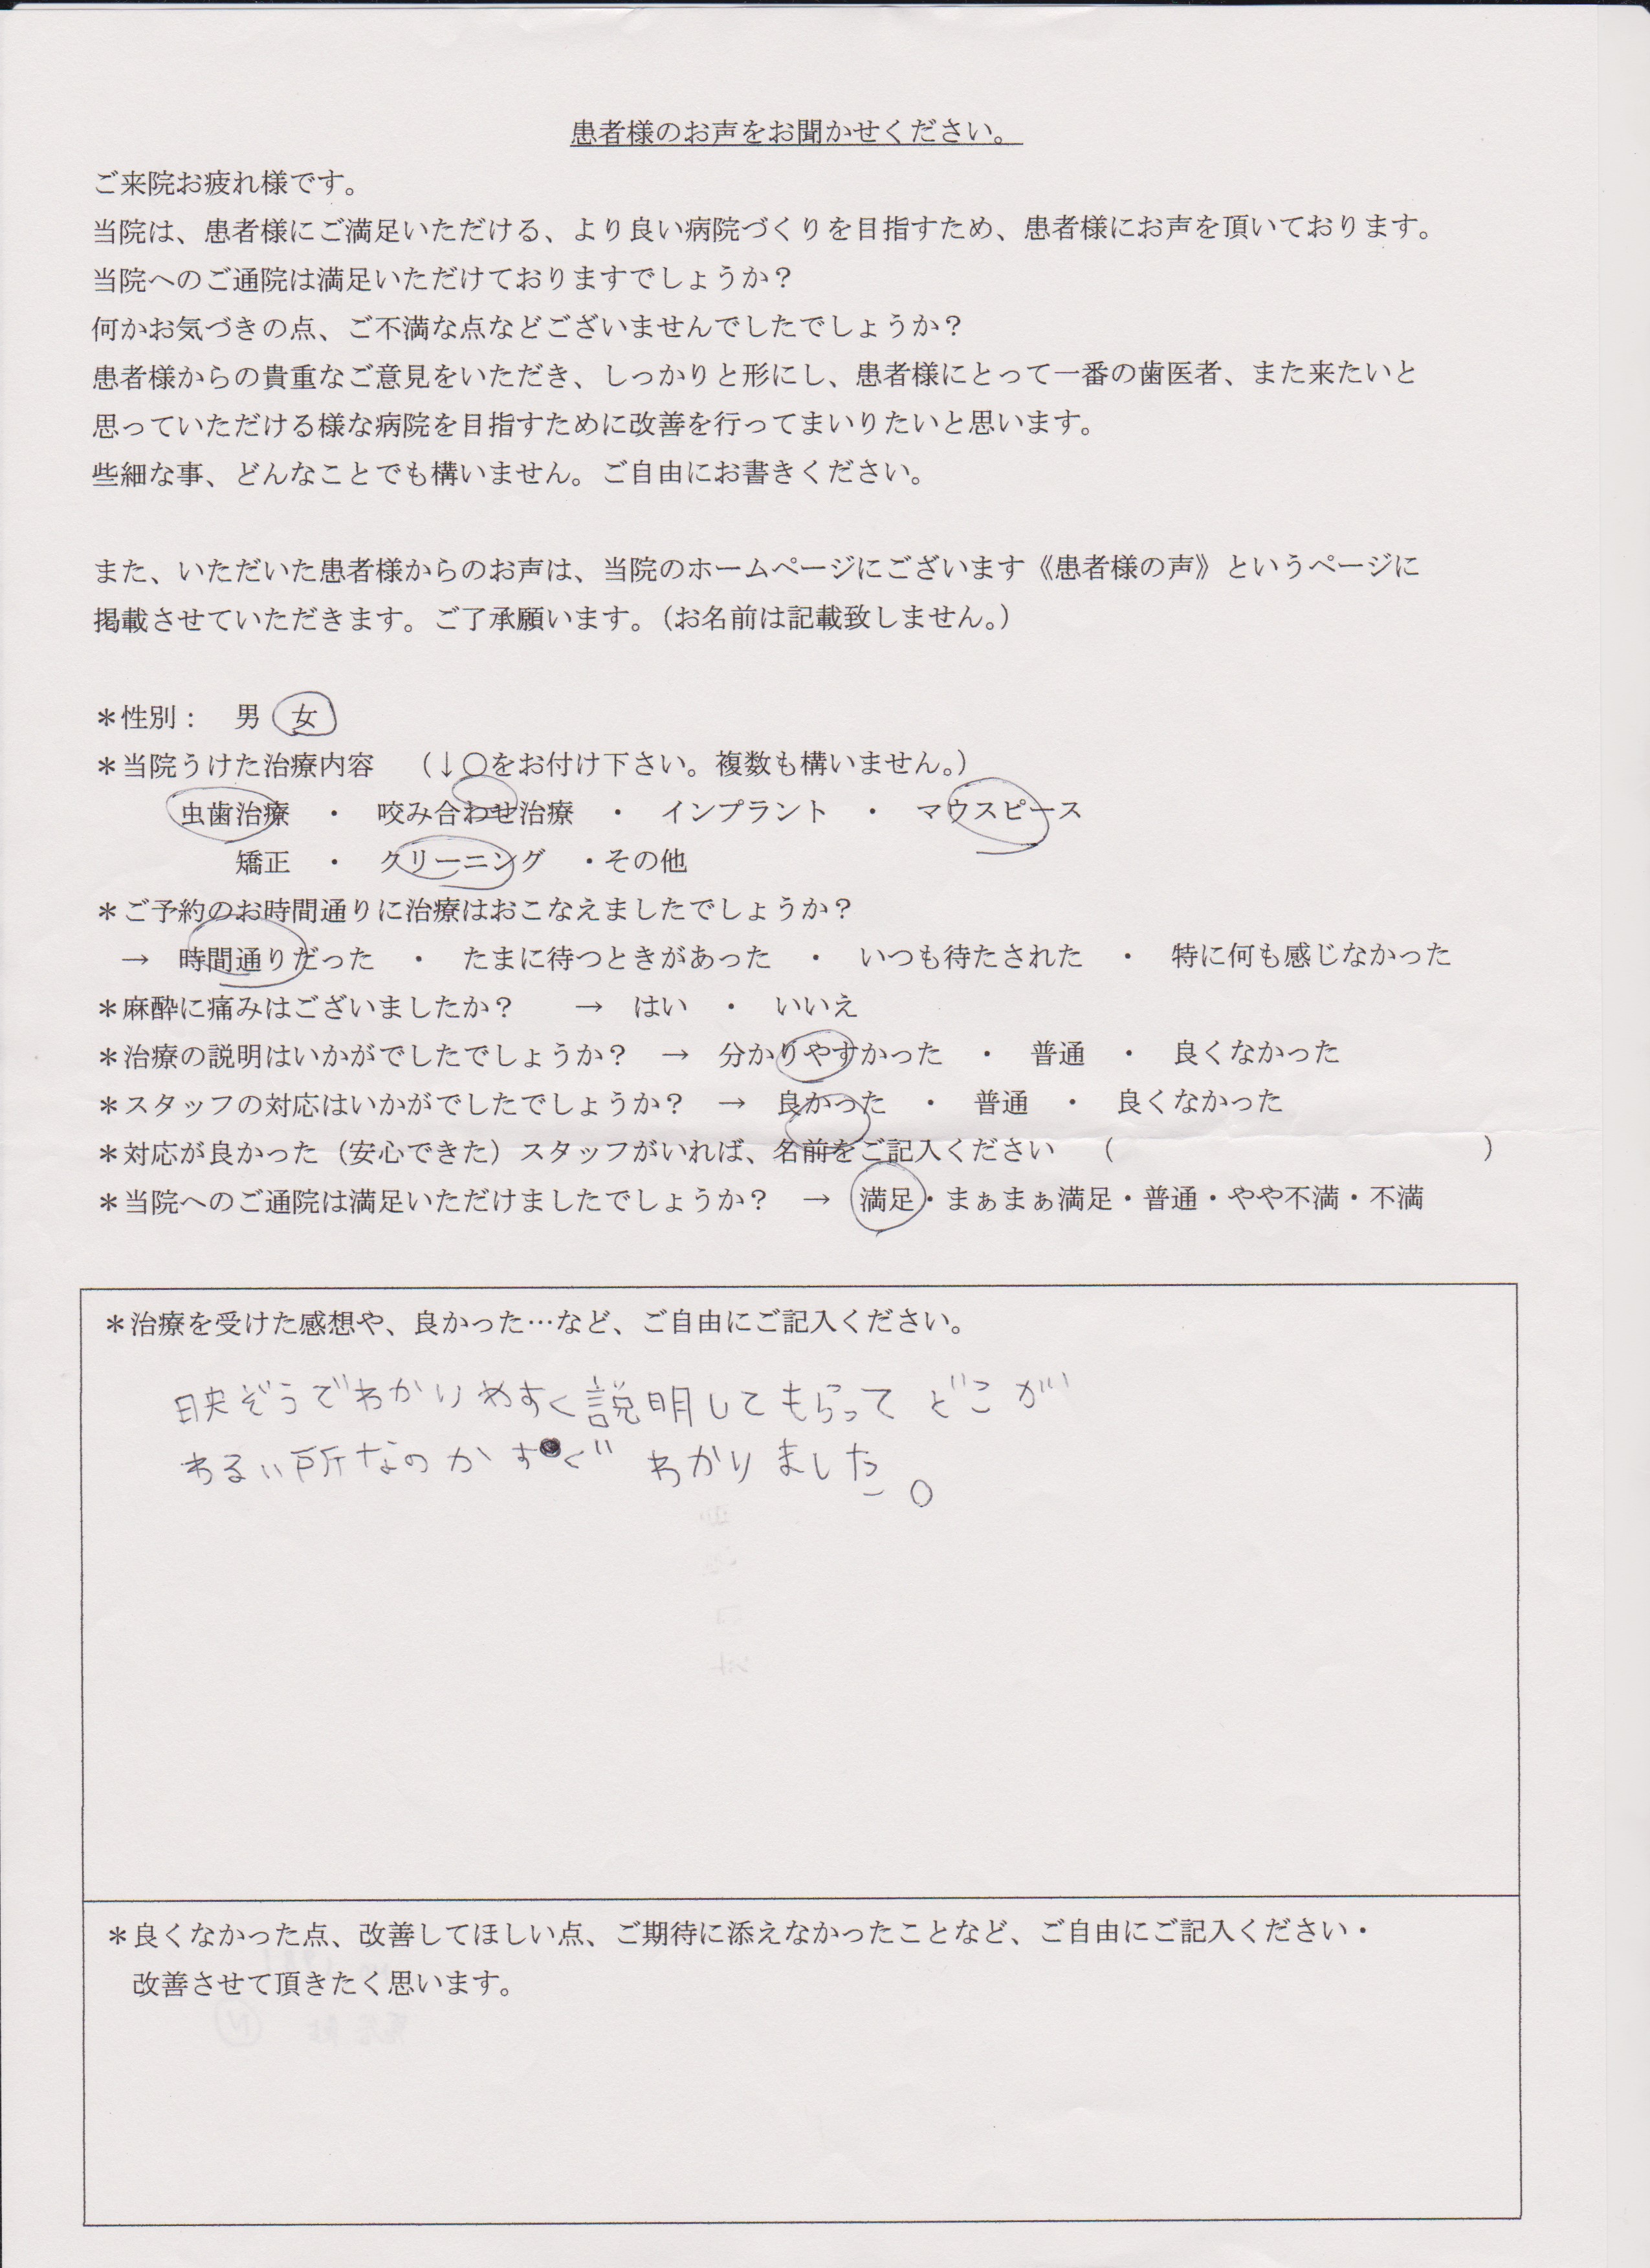 患者様のお声をお聞かせください。
ご来院お疲れ様です。
当院は、患者様にご満足いただける、より良い病院づくりを目指すため、患者様にお声を頂いております。
当院へのご通院は満足いただけておりますでしょうか？
何かお気づきの点、ご不満な点などございませんでしたでしょうか？
患者様からの貴重なご意見をいただき、しっかりと形にし、患者様にとって一番の歯医者、また来たいと
思っていただける様な病院を目指すために改善を行ってまいりたいと思います。
些細な事、どんなことでも構いません。ご自由にお書きください。
また、いただいた患者様からのお声は、当院のホームページにございます《患者様の声》というページに
掲載させていただきます。ご了承願います。（お名前は記載致しません。）
＊性別： 男 女
＊当院うけた治療内容 （↓〇をお付け下さい。複数も構いません。）
虫歯治療 ・ 咬み合わせ治療 ・ インプラント ・ マウスピース
矯正 ・ クリーニング ・その他
＊ご予約のお時間通りに治療はおこなえましたでしょうか？
→ 時間通りだった ・ たまに待つときがあった ・ いつも待たされた ・ 特に何も感じなかった
＊麻酔に痛みはございましたか？ → はい ・ いいえ
＊治療の説明はいかがでしたでしょうか？ → 分かりやすかった ・ 普通 ・ 良くなかった
＊スタッフの対応はいかがでしたでしょうか？ → 良かった ・ 普通 ・ 良くなかった
＊対応が良かった（安心できた）スタッフがいれば、名前をご記入ください （ ）
＊当院へのご通院は満足いただけましたでしょうか？ → 満足・まぁまぁ満足・普通・やや不満・不満
＊治療を受けた感想や、良かった…など、ご自由にご記入ください。
映ぞうでわかりやすく説明してもらって どこが
わるい所なのか すぐ わかりました。
＊良くなかった点、改善してほしい点、ご期待に添えなかったことなど、ご自由にご記入ください・
改善させて頂きたく思います。